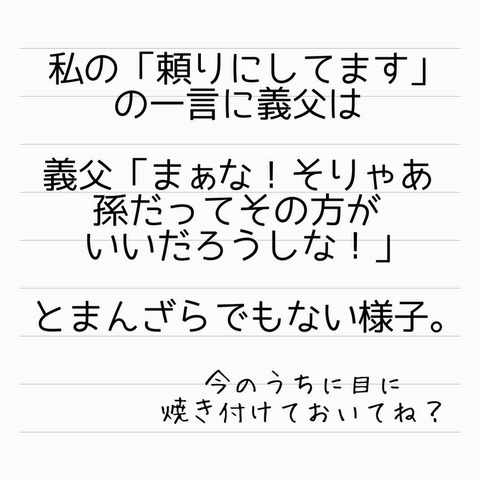 私の「頼りにしてます」
の一言に義父は
義父「まぁな！そりゃあ
孫だってその方が
いいだろうしな！」
とまんざらでもない様子。
今のうちに目に
焼き付けておいてね？